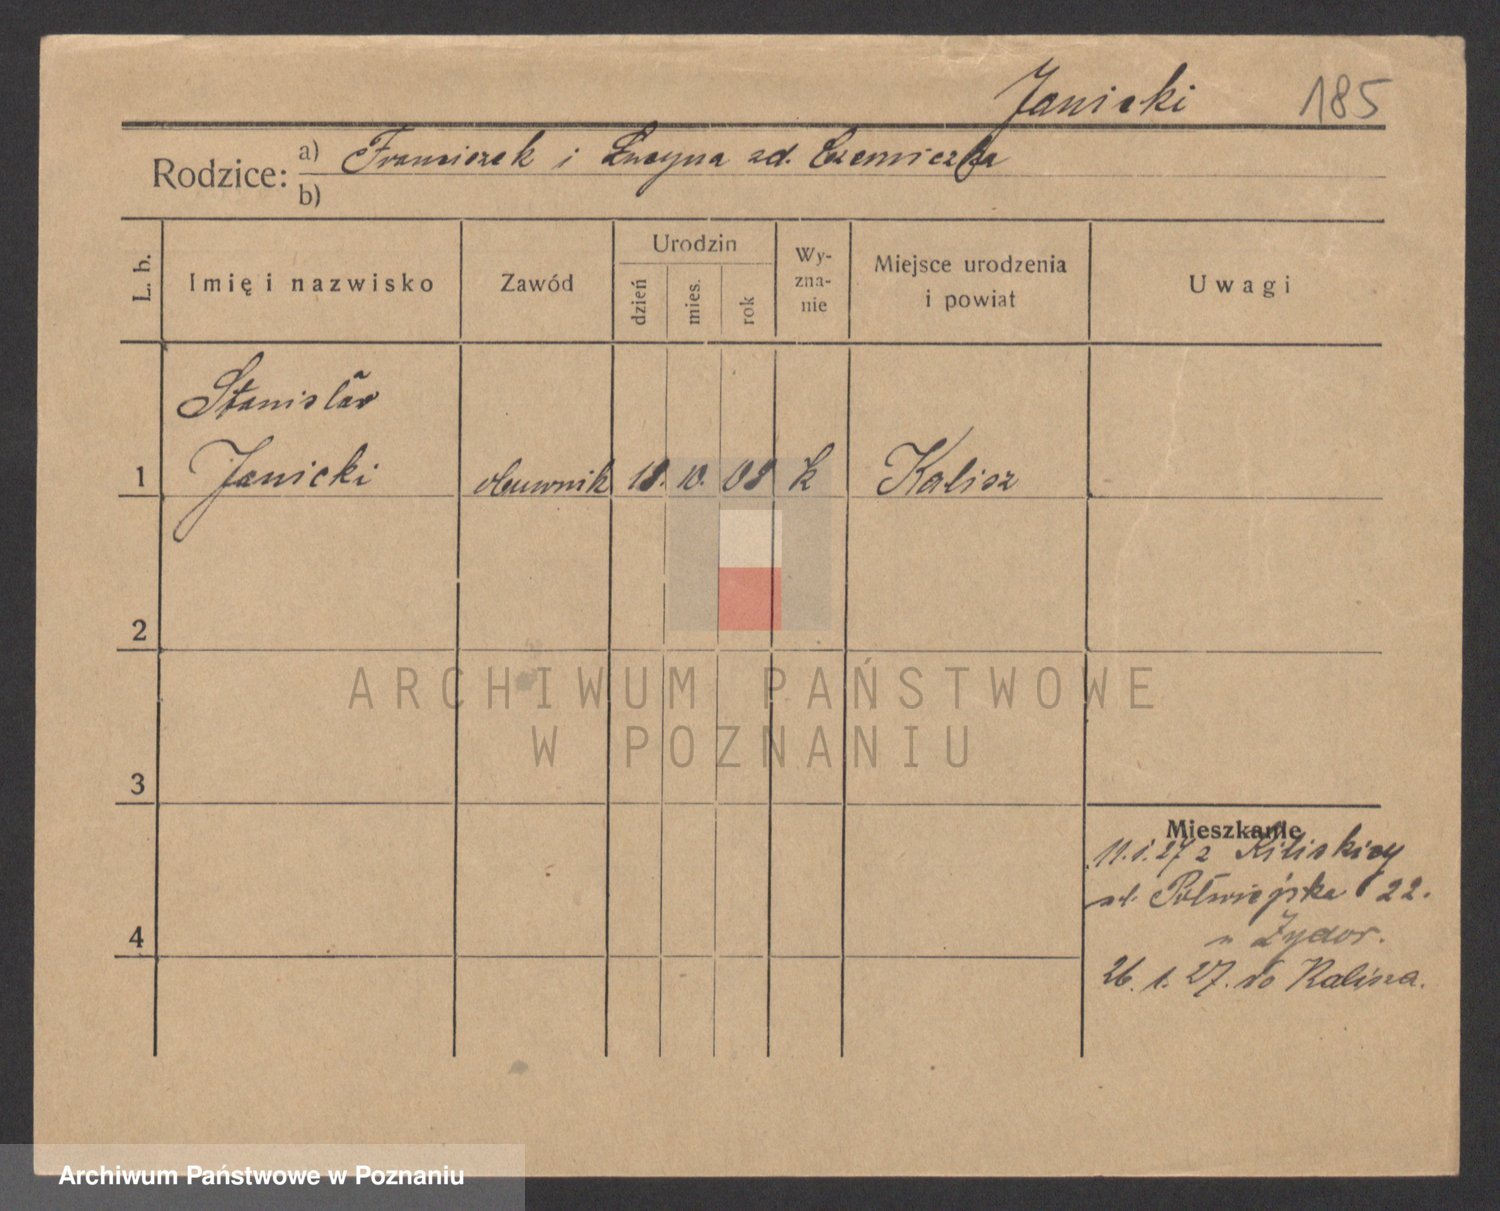 Janicki 185
Rodzice: a) Franciszek i Lucyna zd.
b)
L. b.
Imię i nazwisko
Zawód
Urodzin
dzień
mies.
rok
Wy-
zna-
nie
Miejsce urodzenia
i powiat
Uwagi
Stanisław
1 Janicki obuwnik 18. 10. 08 k Kalisz
2
3
4
Mieszkanie
11. 1. 27 z
ul. Półwiejska 22.
u
26. 1. 27. do Kalisza.
ARCHIWUM PAŃSTWOWE
W POZNANIU
Archiwum Państwowe w Poznaniu